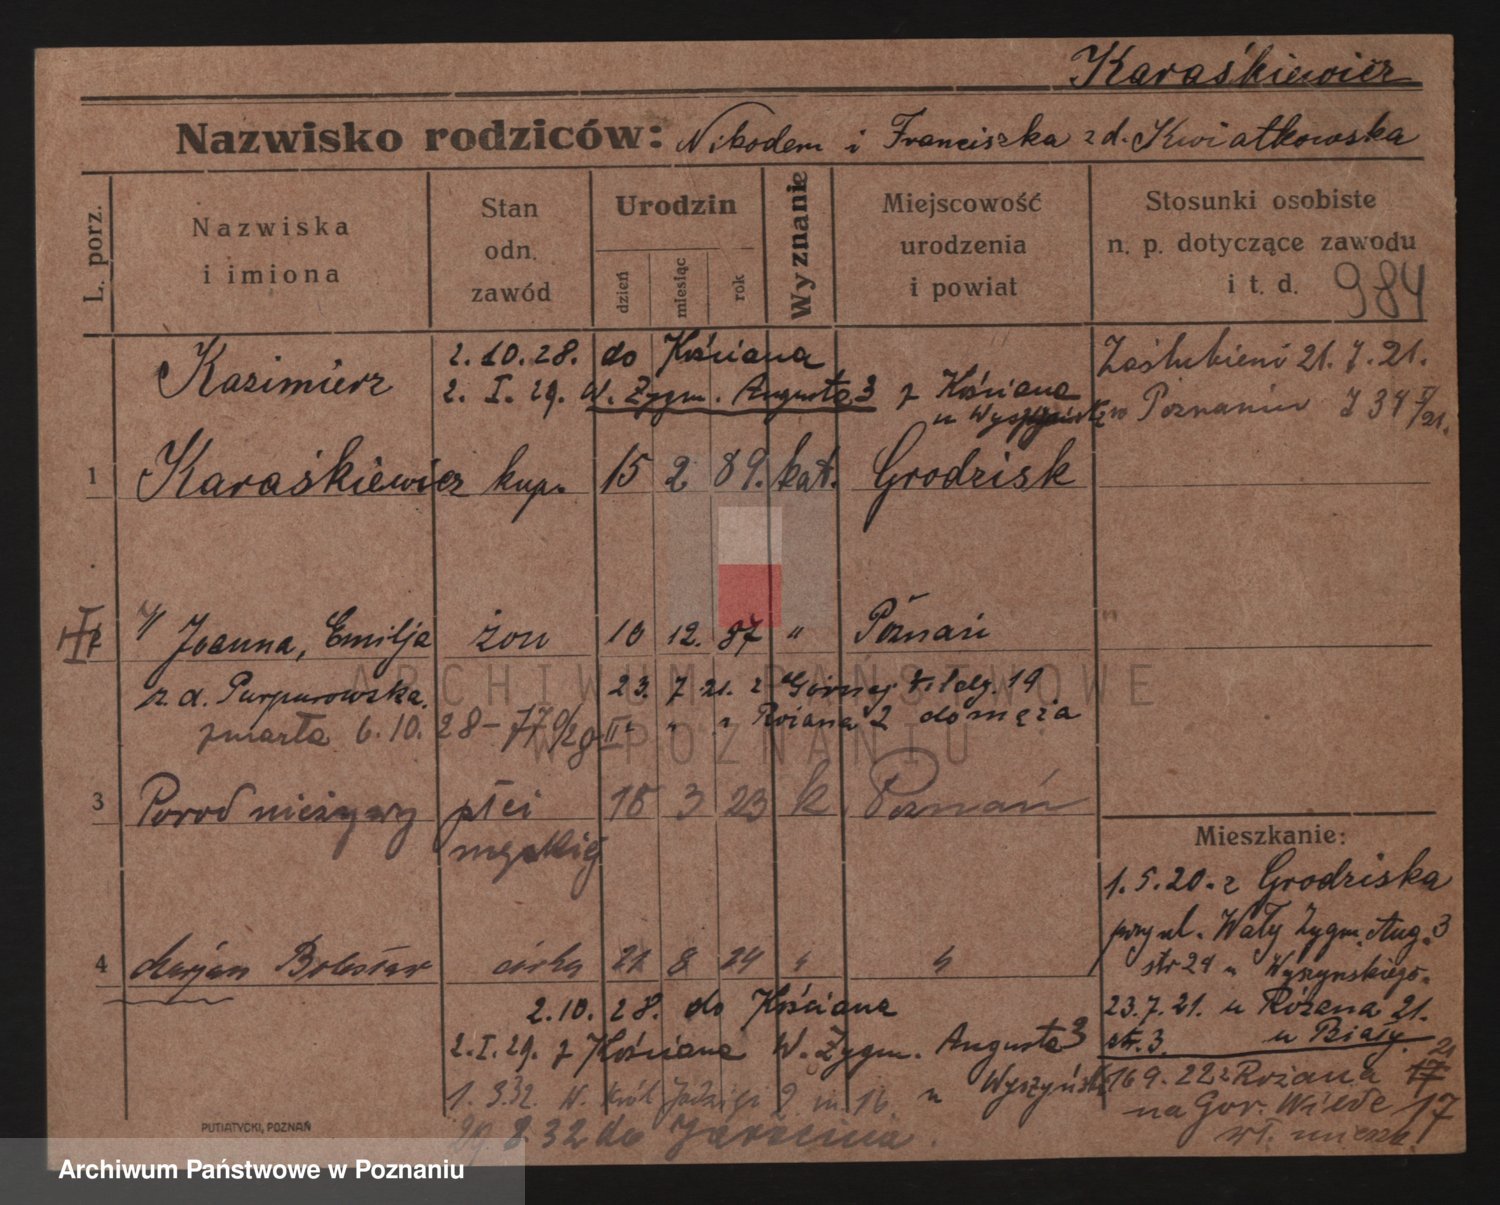 Karaśkiewicz
Nazwisko rodziców: Nikodem i Franciszka z d. Kwiatkowska
L. porz.
Nazwiska
i imiona
Stan
odn.
zawód
Urodzin
dzień
miesiąc
rok
Wyznanie
Miejscowość
urodzenia
i powiat
Stosunki osobiste
n. p. dotyczące zawodu
i t. d. 984
Kazimierz
2.10.28. do Kościana
2. I. 29. W. Zygm. Augusta 3 z Kościana
u
Zaślubieni 21. 7. 21.
w Poznaniu
1 Karaśkiewicz kup. 15 2 89. kat. Grodzisk
Joanna, Emilja żon 10 12. 87 " Poznań "
z d. Purpurowska. 23. 7 21. z Górnej Wildy. 19
zmarła 6. 10. 28 Różana 2 do męża
3 Poród nieżywy płci 18 3 23 k. Poznań
męskiej
4 Marjan Bolesław córka 21 8 24 " "
2.10. 28. do Kościana
2. I. 29. z Kościana W. Zygm. Augusta 3
u Wyszyńsk
1. 3.32. W. Król. Jadwigi 2 m. 16.
29. 8. 32 do Jarocina.
Mieszkanie:
1. 5. 20. z Grodziska
przy ul. Wały Zygm. Aug. 3
str 24 u Wyszynskiego.
23. 7. 21. u Różana 21.
str. 3. u Biały.
16 9. 22 z Różana 21
na Gor. Wilde 17
wł. mieszk.
PUTIATYCKI, POZNAŃ
ARCHIWUM PAŃSTWOWE
W POZNANIU
Archiwum Państwowe w Poznaniu